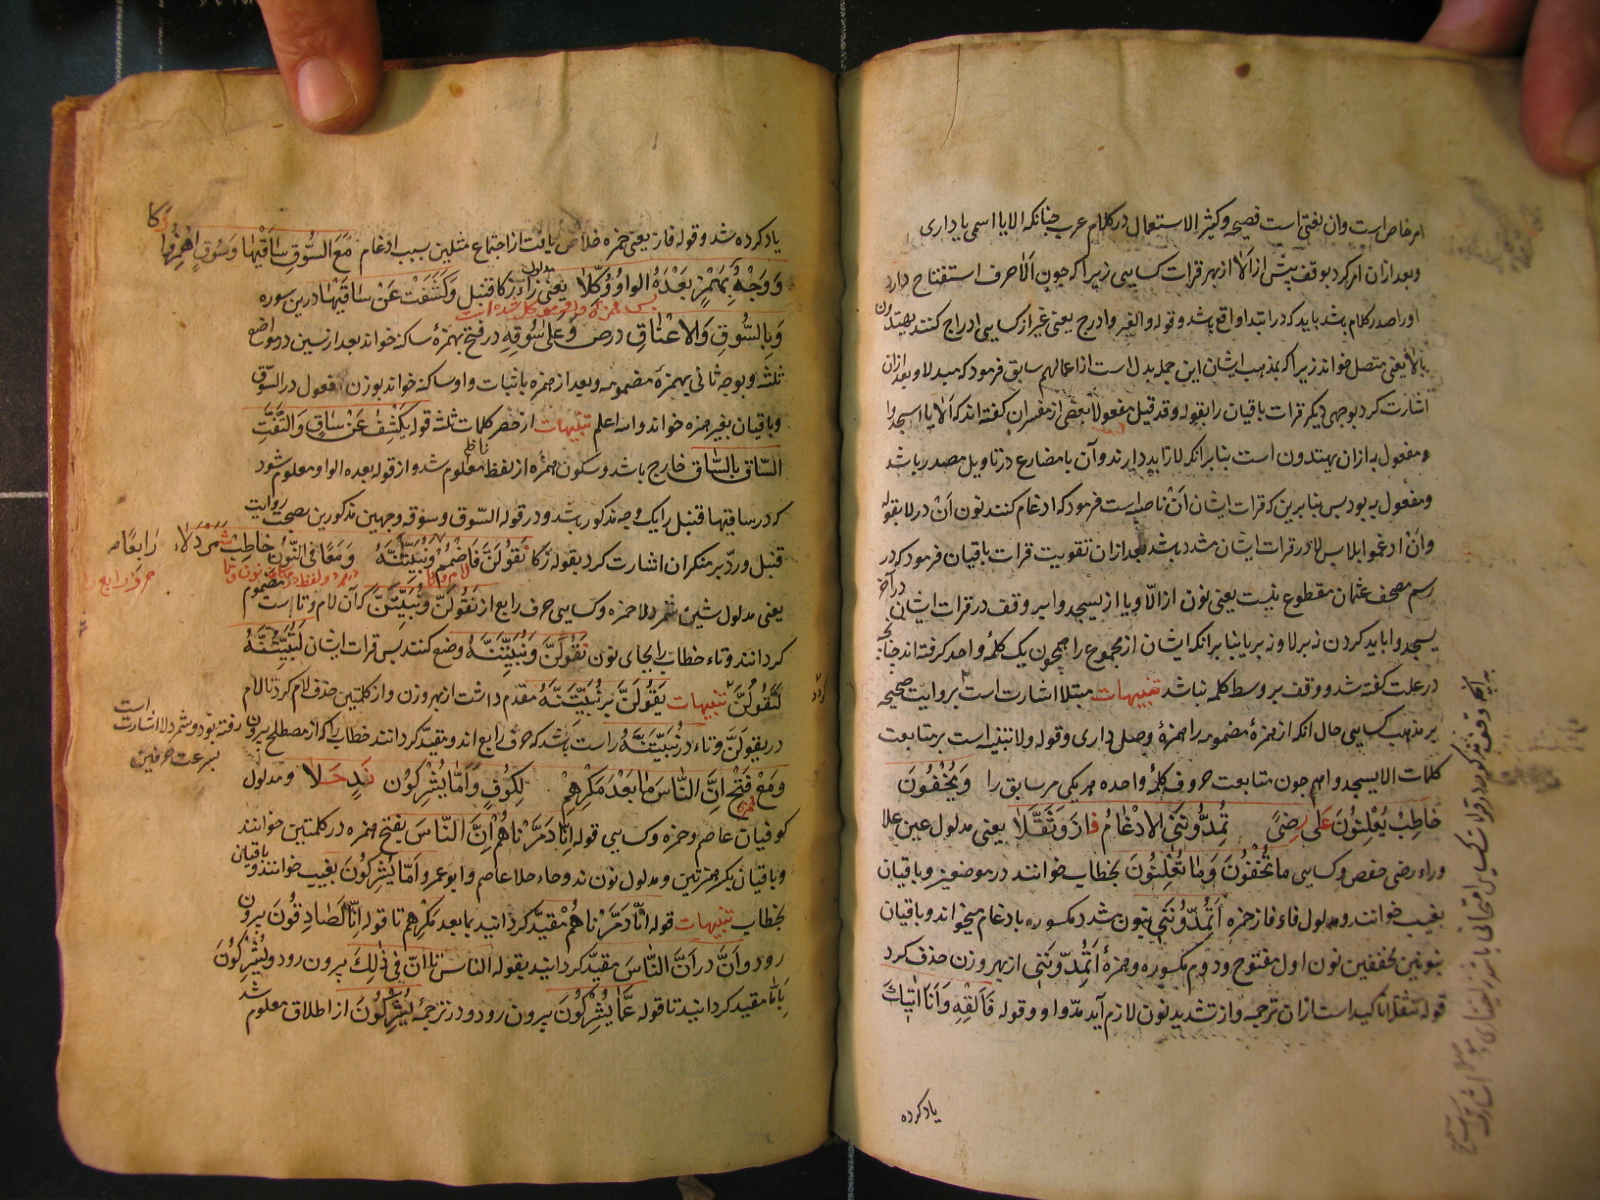 امر خاص است وان لغتی است فصیح و کثیر الاستعمال در کلام عرب چنانکه الا یا اسمی یا داری
وبعد ازان امر کرد بوقف پیش از الا از بهر قرات کسایی زیرا که چون الا حرف استفتاح دارد
اورا صدر کلام بشد باید که در ابتدا واقع بشد وقوله والغیر ادرج یعنی غیر از کسایی ادراج کنند یهتدون
بالا یعنی متصل خواند زیرا که بمذهب ایشان این جمله بدل است از اعمالهم سابق فرمود که مبدلا وبعد ازان
اشارت کرد بوجهی دیگر قرات باقیان را بقوله وقد قیل مفعولا بعضی از مفسران گفته اند که الا یا اسجدوا
مفعول به ازان یهتدون است بنابر آنکه لا زاید دارند وآن با مضارع در تاویل مصدر باشد
ومفعول به بود پس بنا برین که قرات ایشان ان ناصبه است فرمود که ادغام کنند نون ان در لا بقوله
وان ادغموا بلا پس لا در قرات ایشان مشدد بشد بعد ازان تقویت قرات باقیان فرمود که در
رسم مصحف عثمان مقطوع نیست یعنی نون از الا ویا از یسجدوا پس وقف در قرات ایشان در آخر
یسجدوا باید کردن نه بر لا ونه بر یا بنا بر آنکه ایشان از مجموع را همچون یک کلمهٔ واحد گرفته اند چنانچه
در علت گفته شد ووقف بر وسط کلمه نباشد تنبیهات مبتلا اشارت است بروایت صحیحه
بر مذهب کسایی حال آنکه از همزهٔ مضمومه را همزهٔ وصل داری وقوله ولا تنبیه است بر متابعت
کلمات الا یسجدوا بهم چون متابعت حروف کلمهٔ واحده هر یکی مر سابق را ویخفون
خاطب یعلنون علی رضی تمدوننی الادغام فاز وثقلا یعنی مدلول عین علا
وراء رضی حفص وکسایی ما تخفون وما تعلنون بخطاب خوانند در موضعین وباقیان
بغیب خوانند ومدلول فاء فاز حمزه اتمدوننی بنون مشدد مکسوره بادغام میخواند وباقیان
بنونین مخففین نون اول مفتوح ودوم مکسوره وهمزهٔ اتمدوننی از بهر وزن حذف کرد
قوله ثقلا تاکید است ازان ترجمه واز تشدید نون لازم آید مد واو وقوله فالقه وانا آتیک
یاد کرده
یاد کرده شد وقوله فاز یعنی حمزه خلاص یافت از اجتماع مثلین بسبب ادغام مع السوق ساقیها وسوق اهمزوا زکا
ووجه بهمز بعده الواو وکلا یعنی مدلول زاء زکا قنبل وکشفت عن ساقیها درین سوره
پس همزه واو موکل شده است
وبالسوق والاعناق در ص وعلی سوقه در فتح بهمزهٔ ساکنه خواند بعد از سین در مواضع
ثلثه وبوجه ثانی بهمزهٔ مضمومه وبعد از همزه باثبات واو ساکنه خواند بوزن فعول در السوق
وباقیان بغیر همزه خواند والله اعلم تنبیهات از حصر کلمات ثلثه قوله یکشف عن ساق والتفت
الساق بالساق خارج باشد وسکون همزه از لفظ ناظم معلوم شد واز قوله بعده الواو معلوم شود
که در ساقیها قنبل را یک وجه مذکور بشد ودر قوله السوق وسوقه وجهین مذکورین بصحت روایت
قنبل ورد بر منکران اشارت کرد بقوله زکا نقولن فاضمم ونبیتنه ومعا فی النون خاطب شمردلا رابعا
یعنی مدلول شین شمردلا حمزه وکسایی حرف رابع از نقولن ونبیتن که آن لام وتا است مضموم
کردانند وتاء خطاب را بجای نون نقولن ونبیتنه وضع کنند پس قرات ایشان لتبیتنه
لتقولن تنبیهات یقولن بر نبیتنه مقدم داشت از بهر وزن واز کلمتین حذف لام کرد تا لام
در یقولن وتاء در نبیتنه راست بشد که حرف رابع اند ومقید کردانند خطاب را که از مصطلح بیرون
رفته بود وشمردلا اشارت است
بسرعت حرفین
ومع فتح ان الناس ما بعد مکرهم لکوف واما یشرکون ند حلا ومدلول
کوفیان عاصم وحمزه وکسایی قوله انا دمرناهم ان الناس بفتح همزه در کلمتین خوانند
وباقیان بکسر همزتین ومدلول نون ند وحاء حلا عاصم وابو عمرو اما یشرکون بغیب خوانند وباقیان
بخطاب تنبیهات قوله انا دمرناهم مقید کردانید بما بعد مکرهم تا قوله انا لصادقون بیرون
رود وان در ان الناس مقید کردانید بقوله الناس تا ان فی ذلک بیرون رود ویشرکون
باما مقید کردانید تا قوله عما یشرکون بیرون رود ودر ترجمهٔ یشرکون از اطلاق معلوم شد